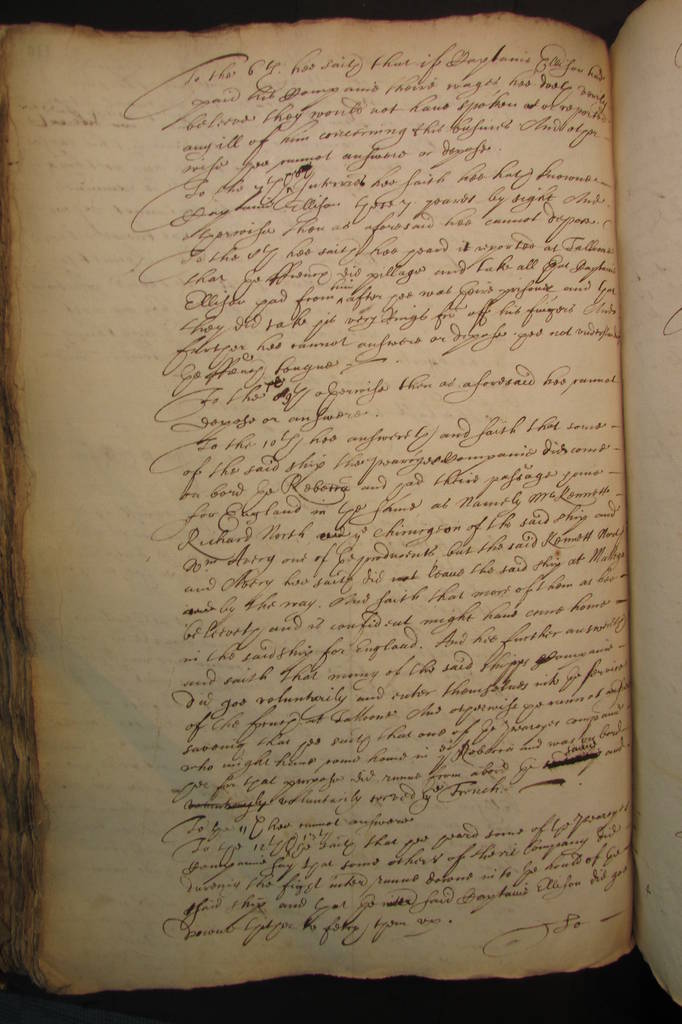 To the 6th. hee saith that if Captaine Ellison had
paid his Companie theire wages hee doth verily
beleeve they would not have spoken or reported
any ill of him concerning this busines And other
wise hee cannot answere or depose.
To the 7th Interrie hee saith hee hath knowne
Captaine Ellison these 7 yeares by sight And
otherwise then as aforesaid hee cannot depose.
To the 8th hee saith hee heard it reported at Tallone
that the ffrench did pillage and take all that Captaine
Ellison had from him after hee was theire prisoner and that
they did take his very rings from off his fingers And
further hee cannot answere or depose hee not understanding
the ffrench tongue.
To the 9th otherwise then as aforesaid hee cannot
depose or answere.
To the 10th hee answereth and saith that some
of the said ship the Peareges Companie did come
on bord the Rebecca and had theire passage home
for England in the same as Namely Mr Kennett
Richard North ye Chirurgeon of the said ship and
Wm Avery one of the producents but the said Kennett North
and Avery hee saith did not leave the said ship at Mallega
by the way. And saith that more of them as hee
beleeveth and is confident might have come home
in the said ship for England. And hee further answereth
and saith that many of the said shipps Companie
did goe voluntarily and enter themselves into the service
of the french at Tallone And otherwise hee cannot answere
saveing that hee saith that one of the Peareges company
who might have come home in ye Rebecca and was on bord
her for that purpose did runne from abord the same and
voluntarily served ye French.
To the 11th hee cannot answere
To the 12th hee saith that hee heard some of the Peareges
Companie say that some others of theire Company did
dureing the fight runne downe in to the hould of the
said ship and that the said Captaine Ellison did goe
downe thither to fetch them up.
To